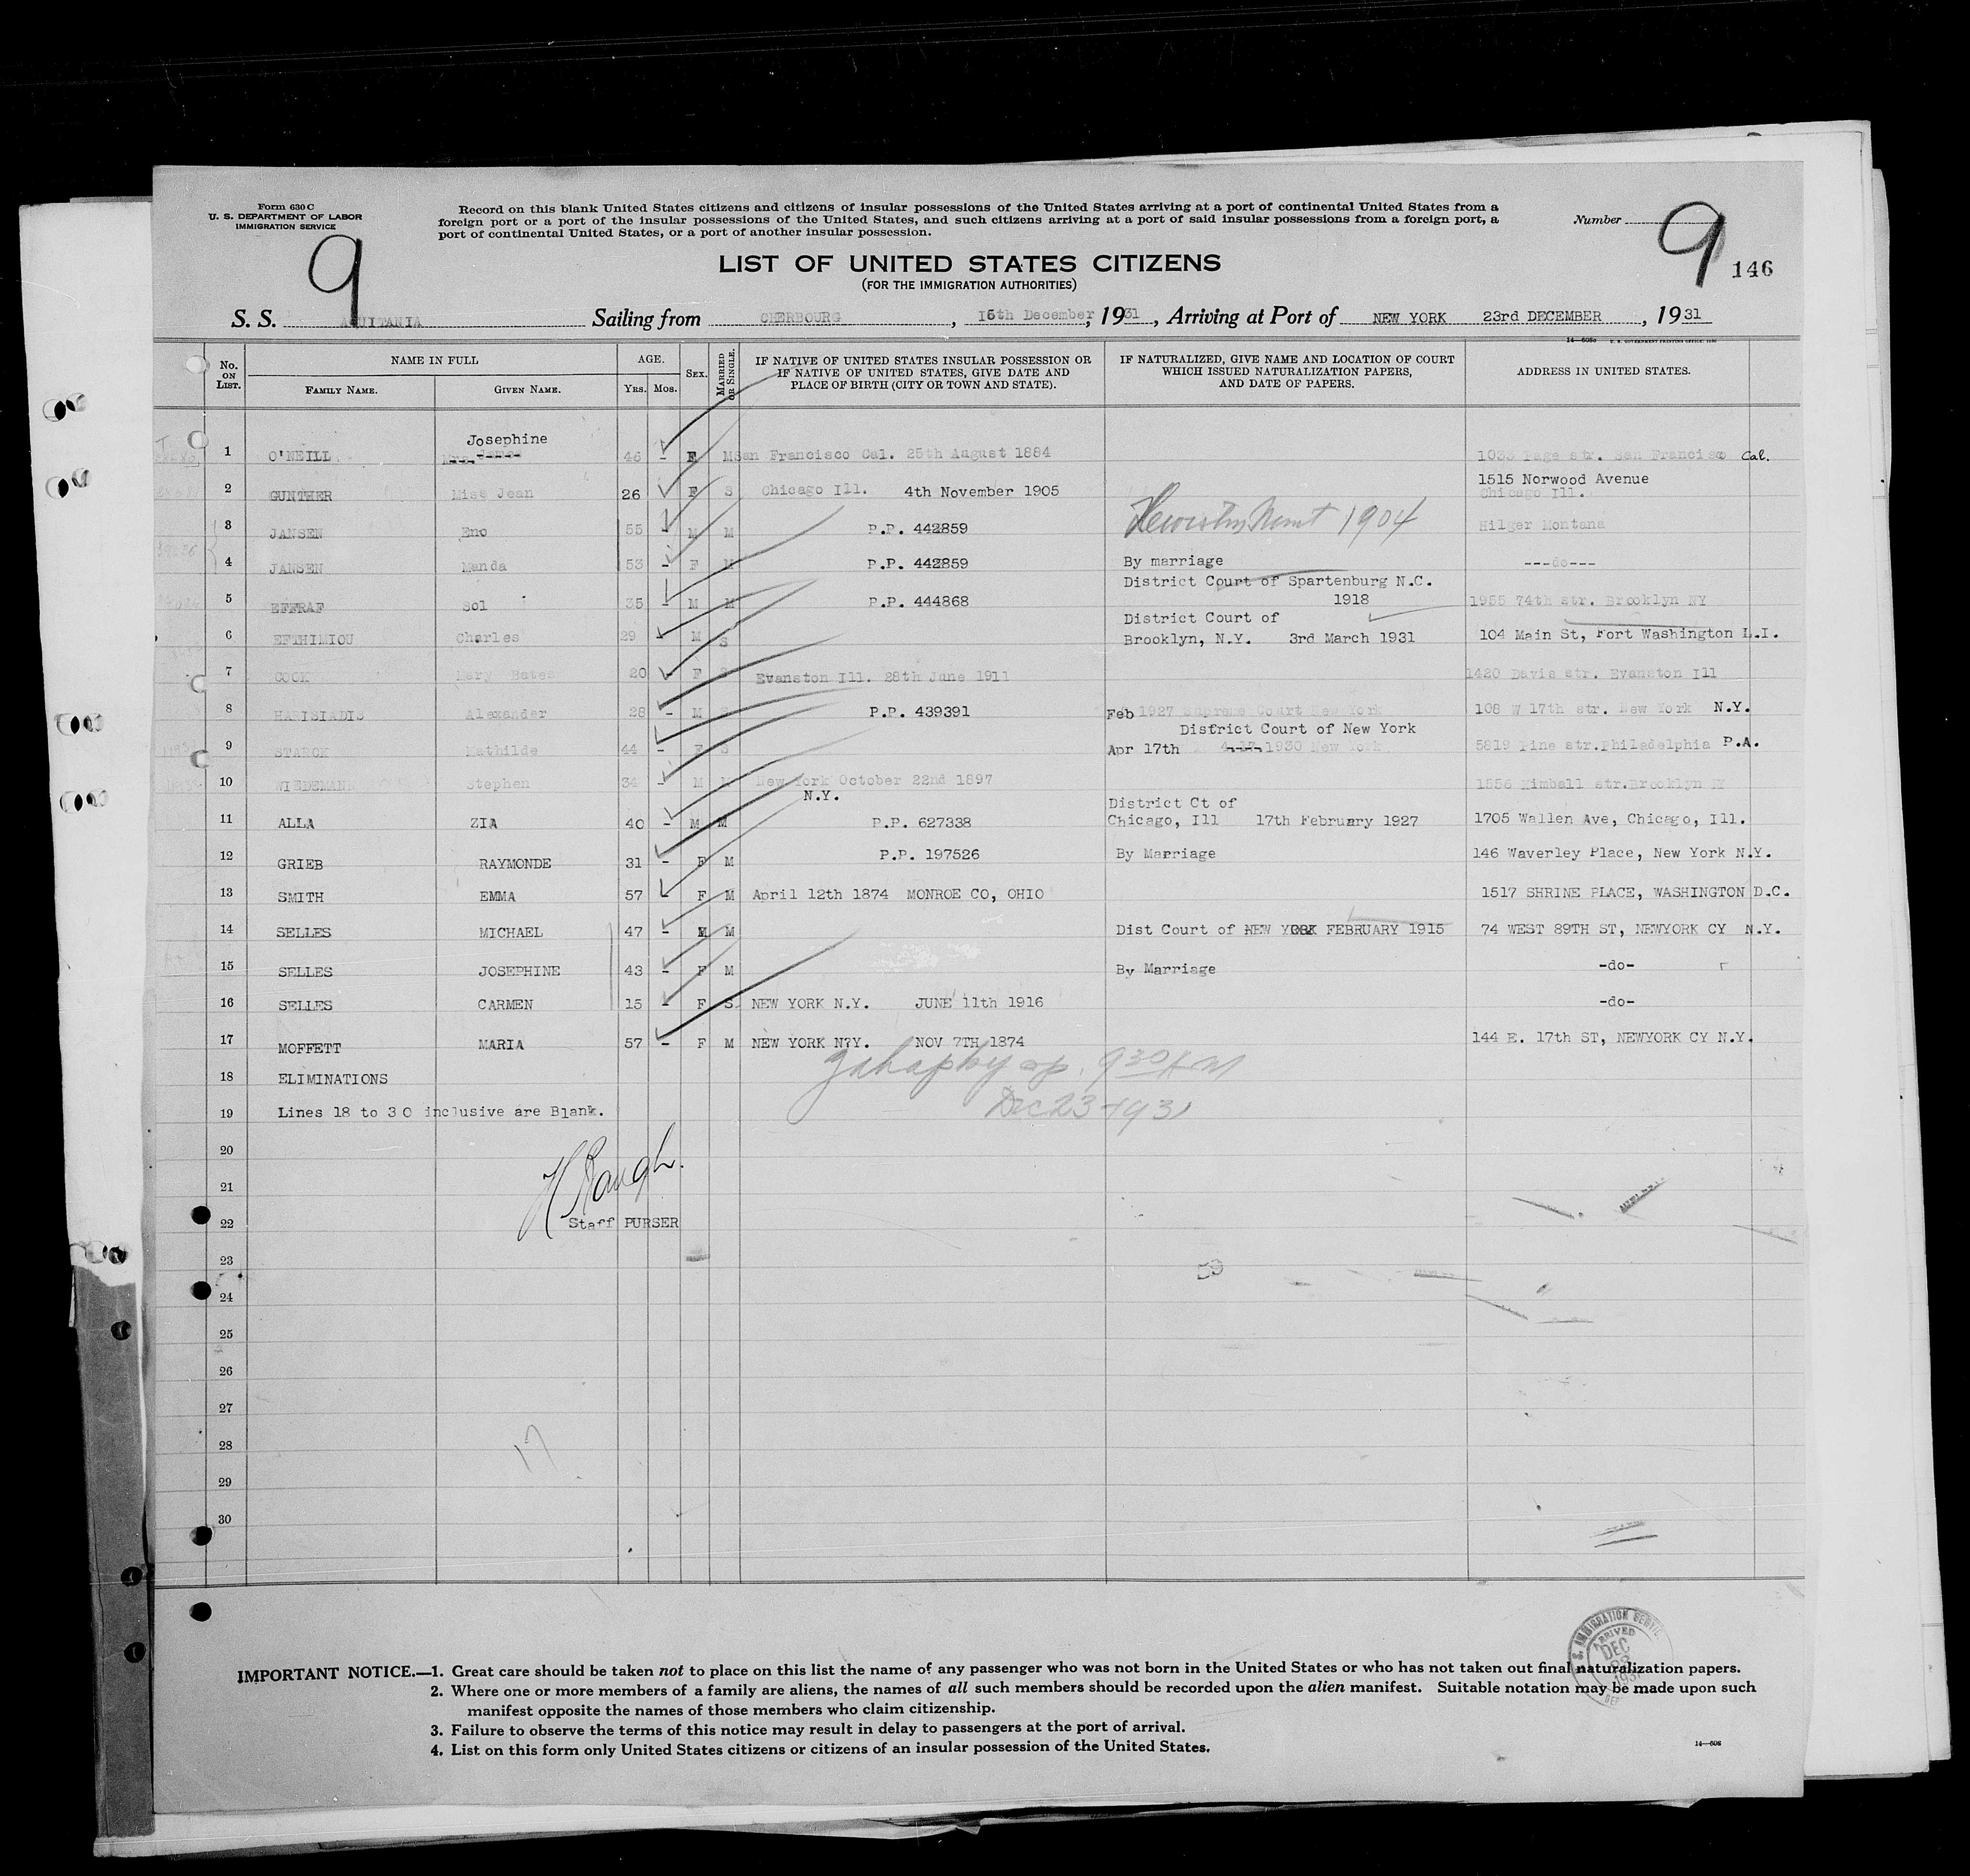 Form 630 C
U. S. DEPARTMENT OF LABOR
IMMIGRATION SERVICE
Record on this blank United States citizens and citizens of insular possessions of the United States arriving at a port of continental United States from a
foreign port or a port of the insular possessions of the United States, and such citizens arriving at a port of said insular possessions from a foreign port, a
port of continental United States, or a port of another insular possession.
Number
9
9
146
LIST OF UNITED STATES CITIZENS
(FOR THE IMMIGRATION AUTHORITIES)
S. S. AQUITANIA Sailing from CHERBOURG, 16th December, 1931, Arriving at Port of NEW YORK 23rd DECEMBER, 1931
No. ON LIST. NAME IN FULL FAMILY NAME. GIVEN NAME. AGE. YRS. MOS. SEX. MARRIED OR SINGLE. IF NATIVE OF UNITED STATES INSULAR POSSESSION OR IF NATIVE OF UNITED STATES, GIVE DATE AND PLACE OF BIRTH (CITY OR TOWN AND STATE). IF NATURALIZED, GIVE NAME AND LOCATION OF COURT WHICH ISSUED NATURALIZATION PAPERS, AND DATE OF PAPERS. ADDRESS IN UNITED STATES.
1 O'NEILL Josephine Mrs. James 46 - F M San Francisco Cal. 25th August 1884 1033 Page str. San Francisco Cal.
2 GUNTHER Miss Jean 26 F S Chicago Ill. 4th November 1905 1515 Norwood Avenue Chicago Ill.
3 JANSEN Eno 55 - M M P.P. 442859 1904 Hilger Montana
4 JANSEN Manda 53 - F M P.P. 442859 By marriage ---do---
5 EFFRAF Sol 35 - M M P.P. 444868 District Court of Spartenburg N.C. 1918 1955 74th str. Brooklyn NY
6 EFTHIMIOU Charles 29 - M S District Court of Brooklyn, N.Y. 3rd March 1931 104 Main St, Fort Washington L.I.
7 COOK Mary Bates 20 - F S Evanston Ill. 28th June 1911 1420 Davis str. Evanston Ill
8 HARISIADIS Alexander 28 - M P.P. 439391 Feb 1927 Supreme Court New York 108 W 17th str. New York N.Y.
9 STARCK Mathilde 44 - F S District Court of New York Apr 17th 1930 New York 5819 Pine str.Philadelphia P.A.
10 WIEDEMANN Stephen 34 - M New York October 22nd 1897 N.Y. 1556 Kimball str.Brooklyn NY
11 ALLA ZIA 40 - M M P.P. 627338 District Ct of Chicago, Ill 17th February 1927 1705 Wallen Ave, Chicago, Ill.
12 GRIEB RAYMONDE 31 - F M P.P. 197526 By Marriage 146 Waverley Place, New York N.Y.
13 SMITH EMMA 57 - F M April 12th 1874 MONROE CO, OHIO 1517 SHRINE PLACE, WASHINGTON D.C.
14 SELLES MICHAEL 47 - M M Dist Court of NEW YORK FEBRUARY 1915 74 WEST 89TH ST, NEWYORK CY N.Y.
15 SELLES JOSEPHINE 43 - F M By Marriage -do-
16 SELLES CARMEN 15 - F S. NEW YORK N.Y. JUNE 11th 1916 -do-
17 MOFFETT MARIA 57 - F M NEW YORK N?Y. NOV 7TH 1874 144 E. 17th ST, NEWYORK CY N.Y.
18 ELIMINATIONS
19 Lines 18 to 30 inclusive are Blank.
930 AM
Dec 23-1931
20
21
22 Staff PURSER
23
59
24
25
26
27
28
17
29
30
U. S. IMMIGRATION SERVICE ARRIVED DEC 23 1931
IMPORTANT NOTICE.—1. Great care should be taken not to place on this list the name of any passenger who was not born in the United States or who has not taken out final naturalization papers.
2. Where one or more members of a family are aliens, the names of all such members should be recorded upon the alien manifest. Suitable notation may be made upon such
manifest opposite the names of those members who claim citizenship.
3. Failure to observe the terms of this notice may result in delay to passengers at the port of arrival.
4. List on this form only United States citizens or citizens of an insular possession of the United States.
14—608